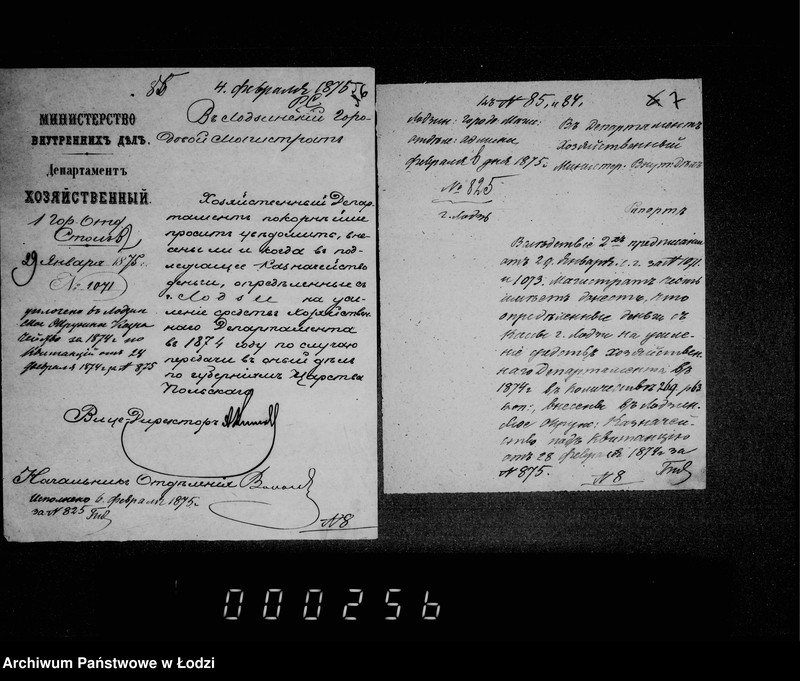 85
4. Февраля 1875
56
МИНИСТЕРСТВО
ВНУТРЕННИХЪ ДѢЛЪ.
Департаментъ
ХОЗЯЙСТВЕННЫЙ.
1 Гор. Отд
Столъ
29 Января 1875 г.
№ 1071
уплочено въ Лодзин
ское Окружное Казна
чейство за 1874 г по
квитанціи отъ 28
февраля 1874 г. за № 875
Въ Лодзинскій Горо-
довой Магистратъ
Хозяйственный Депар-
таментъ покорнѣйше
проситъ увѣдомить, вне-
сены ли и когда въ под-
лежащее Казначейство
деньги, опредѣленныя съ
г. Лодзи на уси-
леніе средствъ Хозяйствен-
наго Департамента
въ 1874 году по случаю
передачи въ оный дѣлъ
по губерніямъ Царства
Польскаго
Вице-Директоръ
Начальникъ Отдѣленія
Исполнено 6. февраля 1875 г
за № 825
№ 8
къ № 85, и 84,
7
Лодзин: Город: Маги:
отдѣл: админи
февраля 6 дня 1875 г
№ 825
г. Лодзь
Въ Департаментъ
Хозяйственный
Министер. Внут: Дѣлъ
Рапортъ
Вслѣдствіе 2хъ предписаній
отъ 29 Января с. г. за № 1071
и 1073. Магистратъ честь
имѣетъ донесть, что
опредѣленные деньги съ
Кассы г. Лодзи на усиле-
ніе средствъ Хозяйствен-
наго Департамента въ
1874 г въ количествѣ
коп:, внесены въ Лодзин-
ское Окруж: Казначей-
ство подъ квитанцію
отъ 28 февраля 1874 г за
№ 875.
№ 8
000256
Archiwum Państwowe w Łodzi